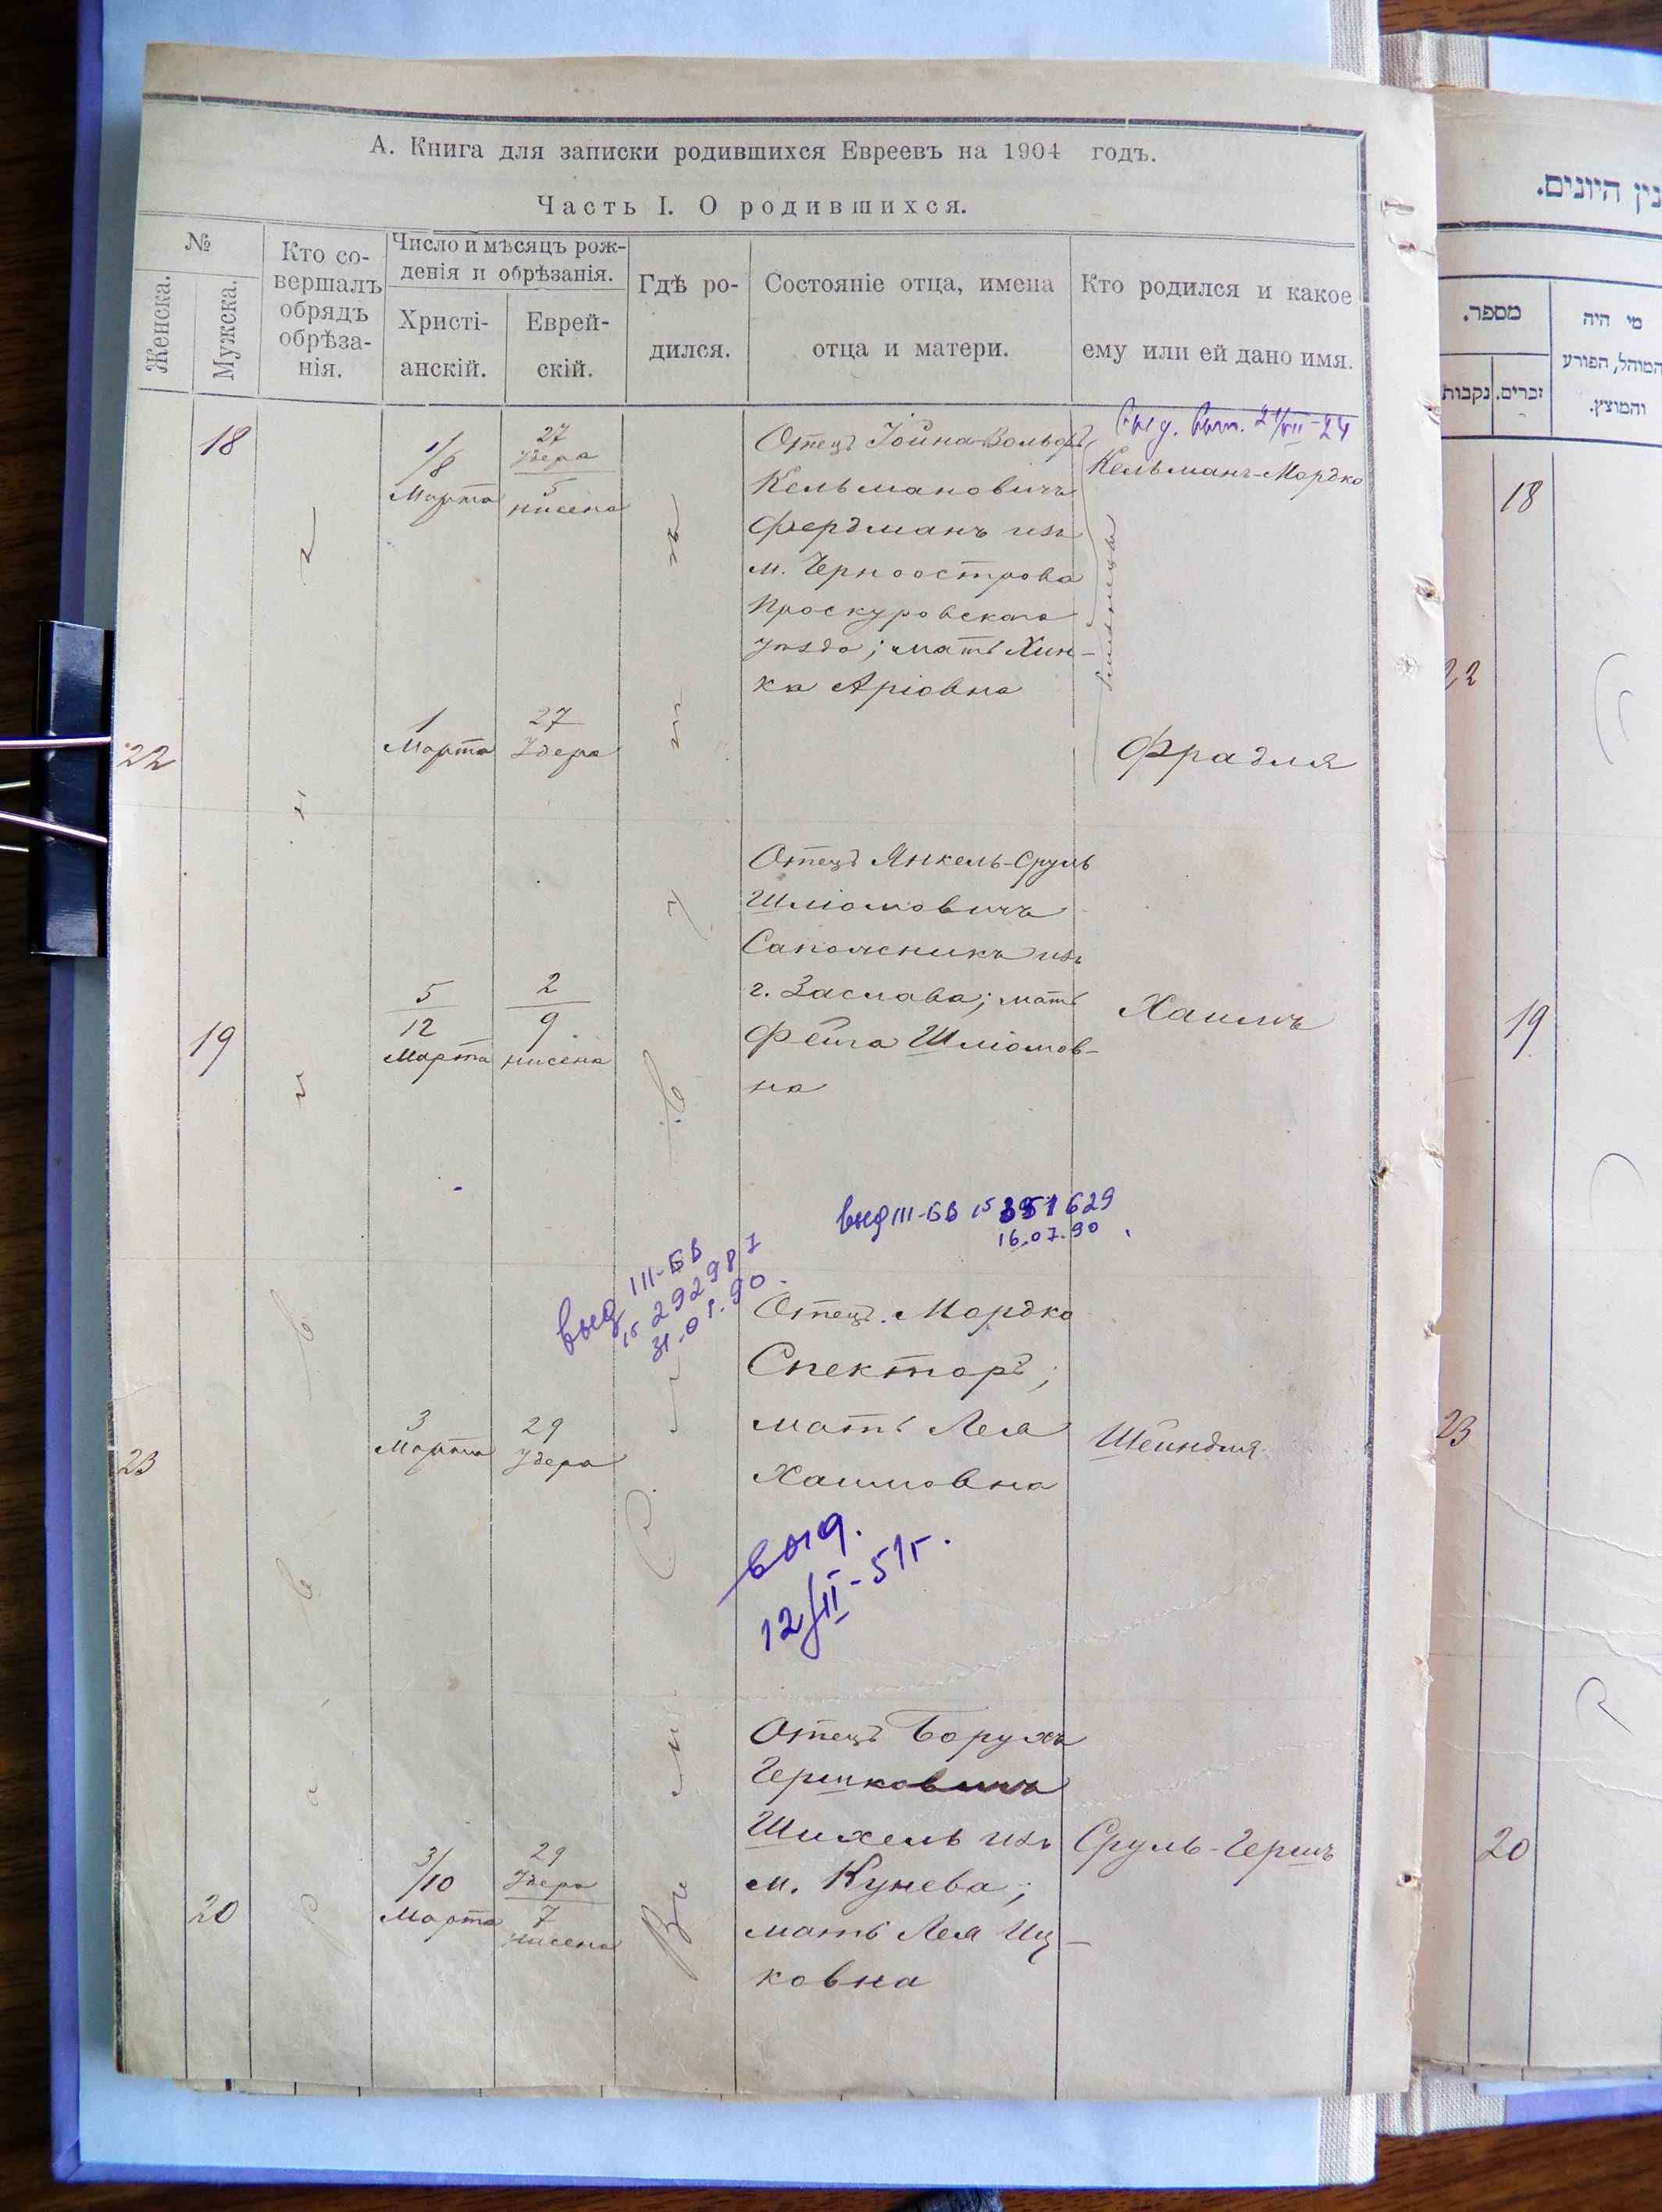 А. Книга для записки родившихся Евреевъ на 1904 годъ.
Часть I. О родившихся.
№
Женска.
Мужска.
Кто со-
вершалъ
обрядъ
обрѣза-
нія.
Число и мѣсяцъ рож-
денія и обрѣзанія.
Христі-
анскій.
Еврей-
скій.
Гдѣ ро-
дился.
Состояніе отца, имена
отца и матери.
Кто родился и какое
ему или ей дано имя.
18
1/8
Марта
27
Адера
5
нисена
Отецъ Іойна-Вольфъ
Кельмановичъ
Фердманъ изъ
м. Черноострова
Проскуровскаго
уѣзда; мать Хин-
ка Аріовна
Кельманъ-Мордко
близнецы
22
1
Марта
27
Адера
Фрадля
19
5
12
Марта
2
9
нисена
Отецъ Янкель-Сруль
Шліомовичъ
Сапожникъ изъ
г. Заслава; мать
Фейга Шліомов-
на
Хаимъ
выд III-БВ
15 292987
31.01.90.
выд III-БВ 15 351629
16.07.90
23
3
Марта
29
Адера
Отецъ Мордко
Спекторъ;
мать Лея
Хаимовна
Шейндля
выд.
12/II-51г.
20
3/10
Марта
29
Адера
7
нисена
Отецъ Борухъ
Гершковичъ
Шихель изъ
м. Кунева;
мать Лея Иц-
ковна
Сруль-Гершъ
היונים.
מספר.
זכרים.
נקבות
מי היה
המוהל, הפורע
והמוצץ.
18
22
19
23
20